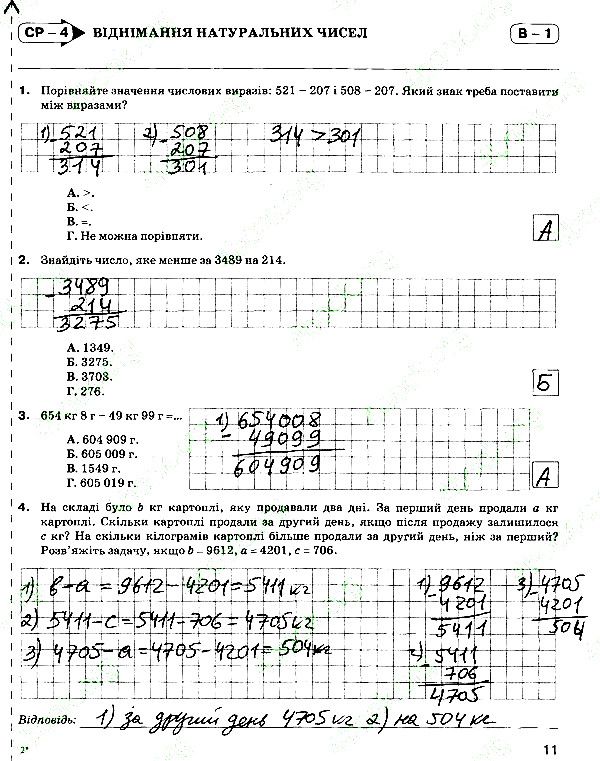 СР – 4 ВІДНІМАННЯ НАТУРАЛЬНИХ ЧИСЕЛ В – 1
1. Порівняйте значення числових виразів: 521 – 207 і 508 – 207. Який знак треба поставити
між виразами?
1) 521 2) 508 314 > 301
- 207 - 207
314 301
А. >.
Б. <.
В. =.
Г. Не можна порівняти.
А
2. Знайдіть число, яке менше за 3489 на 214.
- 3489
214
3275
А. 1349.
Б. 3275.
В. 3703.
Г. 276.
Б
3. 654 кг 8 г – 49 кг 99 г =...
1) 654008
- 49099
604909
А. 604 909 г.
Б. 605 009 г.
В. 1549 г.
Г. 605 019 г.
А
4. На складі було b кг картоплі, яку продавали два дні. За перший день продали a кг
картоплі. Скільки картоплі продали за другий день, якщо після продажу залишилося
c кг? На скільки кілограмів картоплі більше продали за другий день, ніж за перший?
Розв'яжіть задачу, якщо b = 9612, a = 4201, c = 706.
1) в–а = 9612 – 4201 = 5411 кг
2) 5411 – с = 5411 – 706 = 4705 кг
3) 4705 – а = 4705 – 4201 = 504 кг
1) 9612 3) 4705
- 4201 - 4201
5411 504
2) 5411
- 706
4705
Відповідь: 1) за другий день 4705 кг 2) на 504 кг
2* 11